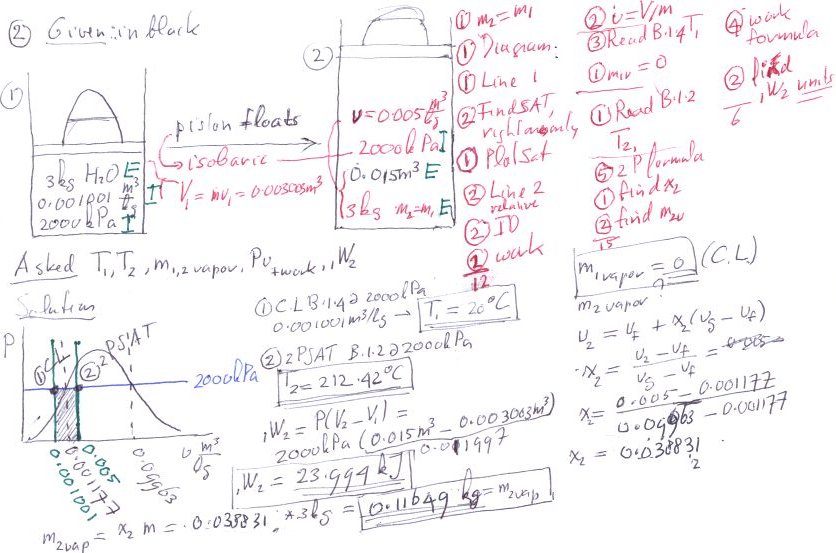 ② Given: in black
①
3kg H₂O E
0.001001 m³/kg I
2000kPa I
piston floats
isobaric
V₁ = mv₁ = 0.003003m³
②
v = 0.005 m³/kg
2000kPa I
0.015m³ E
3kg m₂=m₁ E
① m₂ = m₁
① Diagram:
① Line 1
② Find SAT, right anomaly
① Plot Sat
② Line 2 relative
② ID
② work
12
② v = V/m
③ Read B.1.4 T₁
① m₁v = 0
① Read B.1.2 T₂,
⑤ 2P formula
① find x₂
② find m₂v
15
④ work formula
② find ₁W₂ units
6
Asked T₁, T₂, m₁,₂ vapor, Pv + work, ₁W₂
Solution
P
① CL
② 2P SAT
2000kPa
υ m³/kg
0.001001
0.001177
0.005
0.09963
① C.L B.1.4 @ 2000kPa
0.001001m³/kg → T₁ = 20°C
② 2PSAT B.1.2 @ 2000kPa
T₂ = 212.42°C
₁W₂ = P(V₂ - V₁) =
2000kPa (0.015m³ - 0.003003m³)
0.011997
₁W₂ = 23.994 kJ
m₂vap = x₂ m = 0.038831 * 3kg = 0.11649 kg = m₂vap
m₁vapor = 0 (C.L.)
m₂vapor ?
υ₂ = υf + x₂(υg - υf)
x₂ = υ₂ - υf / υg - υf =
x₂ = 0.005 - 0.001177 / 0.09963 - 0.001177
x₂ = 0.038831